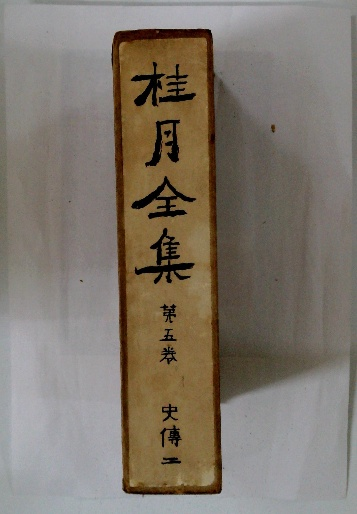 桂月全集
第五巻
史傳二